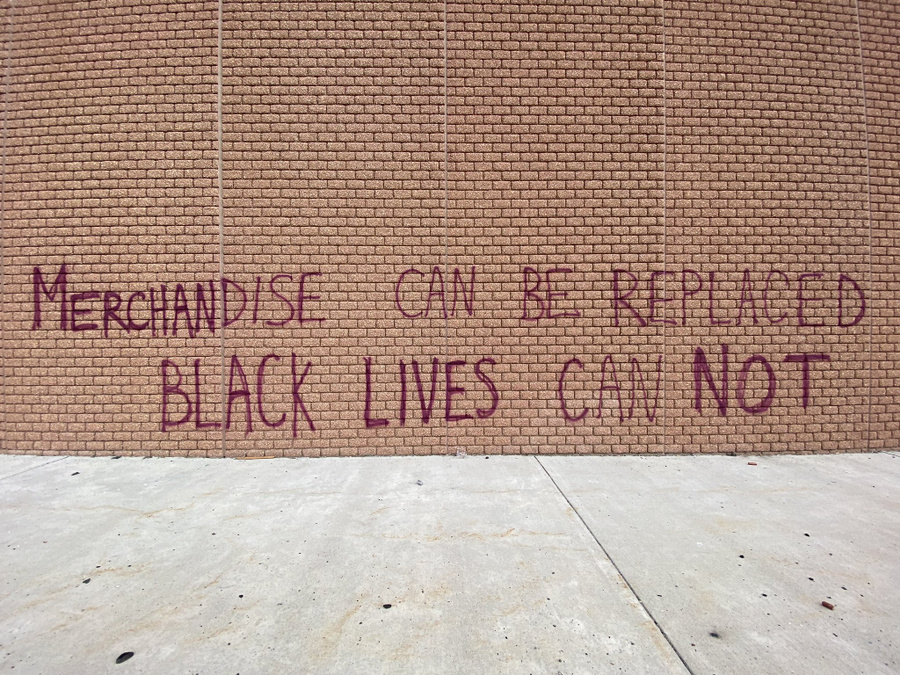 MERCHANDISE CAN BE REPLACED
BLACK LIVES CAN NOT